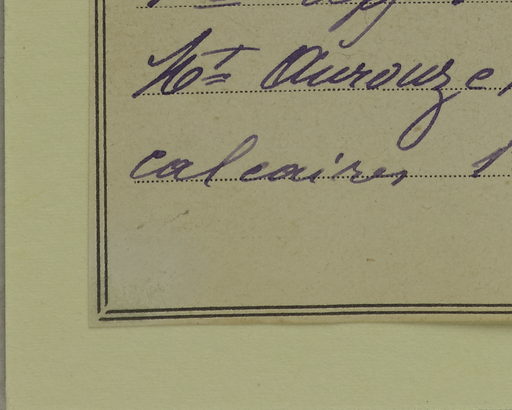 Mt Aurouze,
calcaires 1